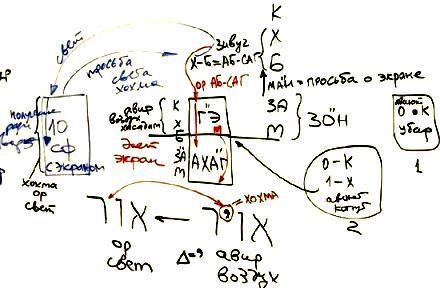 К
Х
Б
свет
зивуг
Х-Б=АБ-САГ
просьба
света
хохма
ор АБ-САГ
МАН=просьба о экране
10
СФ
с экраном
хохма
ор
свет
авир
воздух
хасадим
К
Х
Б
ЗА
М
Г"Э
АХАГ
экран
ЗА
М
ЗОН
0 • К
убар
1
0-К
1-Х
2
= хохма
אור
←
אויר
ор
свет
Δ=י
авир
воздух